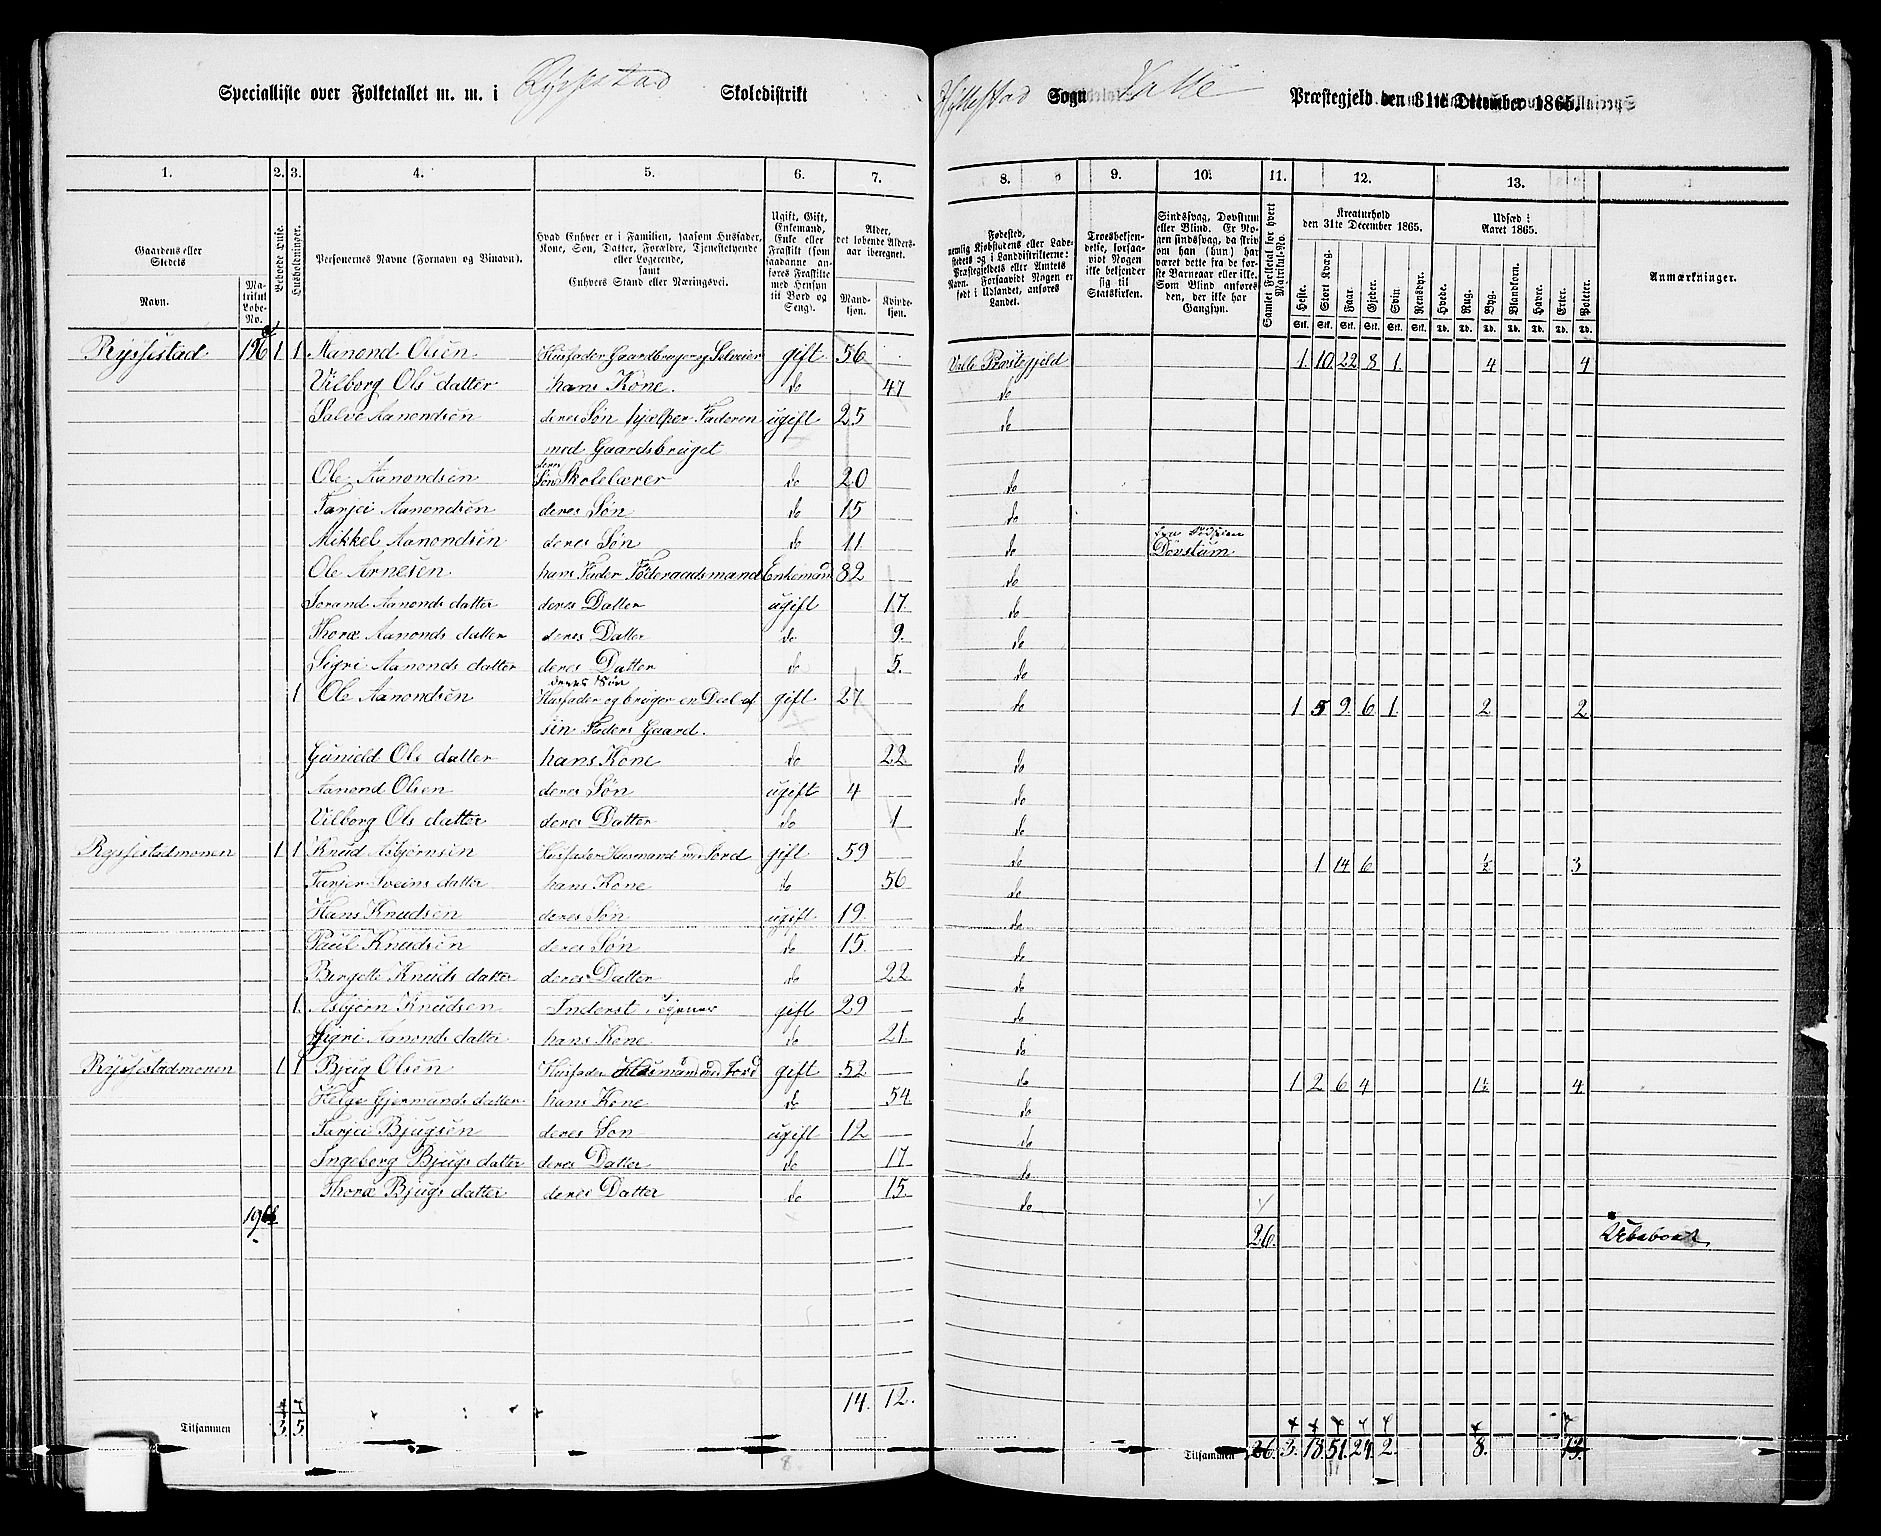 Specialliste over Folketallet m. m. i Ryssestad Skoledistrikt Hyllestad Sogn Valle Præstegjeld den 31te December 1865.
1. 2. 3. 4. 5. 6. 7. 8. 9. 10. 11. 12. 13.
Gaardens eller Stedets Navn. Matrikul Løbe-No. Beboede Huse. Husholdninger. Personernes Navne (Fornavn og Tilnavn). Hvad Enhver er i Familien, saasom Husfader, Kone, Søn, Datter, Forældre, Tjenestetyende eller Logerende, samt Enhvers Stand eller Næringsvei. Ugift, Gift, Enkemand, Enke eller Fraskilt (saadanne anføres Fraskilte med Hensyn til Bord og Seng). Alder, det løbende Alders-aar iberegnet. Mandkjøn. Kvindekjøn.
Fødested, nemlig Kjøbstadens eller Ladestedets og i Landdistrikterne: Præstegjeldets eller Amtets Navn. Forsaavidt Nogen er født i Udlandet, anføres Landet. Troesbekjendelse, forsaavidt Nogen ikke bekjender sig til Statskirken. Sindssvag, Døvstum eller Blind. Er Nogen sindssvag, da skriv om han (hun) har været dette fra de første Barneaar eller ikke. Som Blind anføres den, der ikke har Gangsyn. Samlet Folketal for hvert Matrikul-No. Kreaturhold den 31te December 1865. Udsæd i Aaret 1865. Anmærkninger.
Heste. Stort Kvæg. Faar. Gjeder. Svin. Rensdyr. Hvede. Rug. Byg. Blandkorn. Havre. Erter. Poteter.
Stk. Stk. Stk. Stk. Stk. Stk. Td. Td. Td. Td. Td. Td. Td.
Ryssestad 196 a 1 1 Aanond Olsen Husfader Gaardbruger og Selveier gift 56 Valle Præstegjeld 1. 10 22 8 1. 4 4
Vilborg Ols datter hans Kone. do 47 do
Salve Aanondsen deres Søn hjælper Faderen ugift 25 do
med Gaardsbruget
Ole Aanondsen deres Søn Skolelærer do 20 do
Tarjei Aanondsen deres Søn do 15 do
Mikkel Aanondsen deres Søn do 11 do Døvstum
Ole Arnesen hans Fader Føderaadsmand Enkemand 82 do
Jorand Aanonds datter deres Datter ugift 17. do
Thoræ Aanonds datter deres Datter do 9. do
Sigri Aanonds datter deres Datter do 5. do
1 Ole Aanondsen deres Søn Husfader og bruger en Deel af gift 27 do 1 5 9 6 1. 2 2
sin Faders Gaard.
Gunild Ols datter hans Kone do 22 do
Aanond Olsen deres Søn ugift 4 do
Vilborg Ols datter deres Datter do 1 do
Ryssestadmonen 1 1 Knud Asbjørnsen Husfader Husmand med Jord gift 59 do 1 14 6 ½ 3
Tarjer Sveins datter hans Kone do 56 do
Hans Knudsen deres Søn ugift 19. do
Paul Knudsen deres Søn do 15. do
Birgette Knuds datter deres Datter do 22 do
1. Asbjørn Knudsen Inderst gift 29 do
Sigri Aanonds datter hans Kone do 21. do
Ryssestadmonen 1 1 Bjug Olsen Husfader Husmand med Jord gift 52 do 1 2 6 4 1½ 4
Helge Gjermunds datter hans Kone do 54 do
Tarjei Bjugsen deres Søn ugift 12 do
Ingeborg Bjugs datter deres Datter do 17 do
Thoræ Bjugs datter deres Datter do 15. do
26.
14. 12.
Tilsammen 3. 5. Tilsammen 26. 3. 18 51. 24. 2. 8. 13.